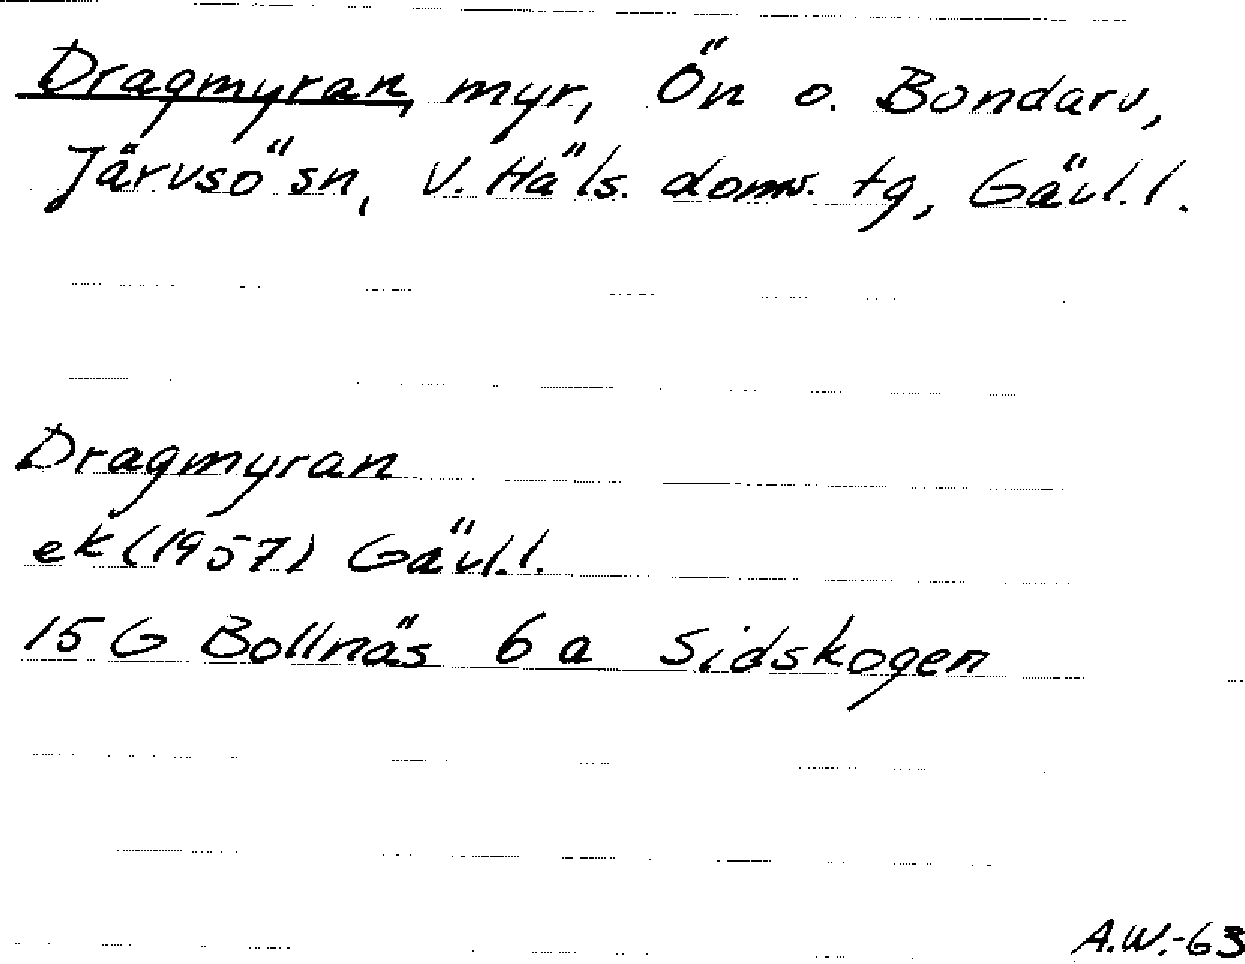 Dragmyran, myr, Ön o. Bondarv,
Järvsö sn, V. Häls. doms. tg, Gävl. l.
Dragmyran
ek (1957) Gävl. l.
15 G Bollnäs 6 a Sidskogen
A.W.-63